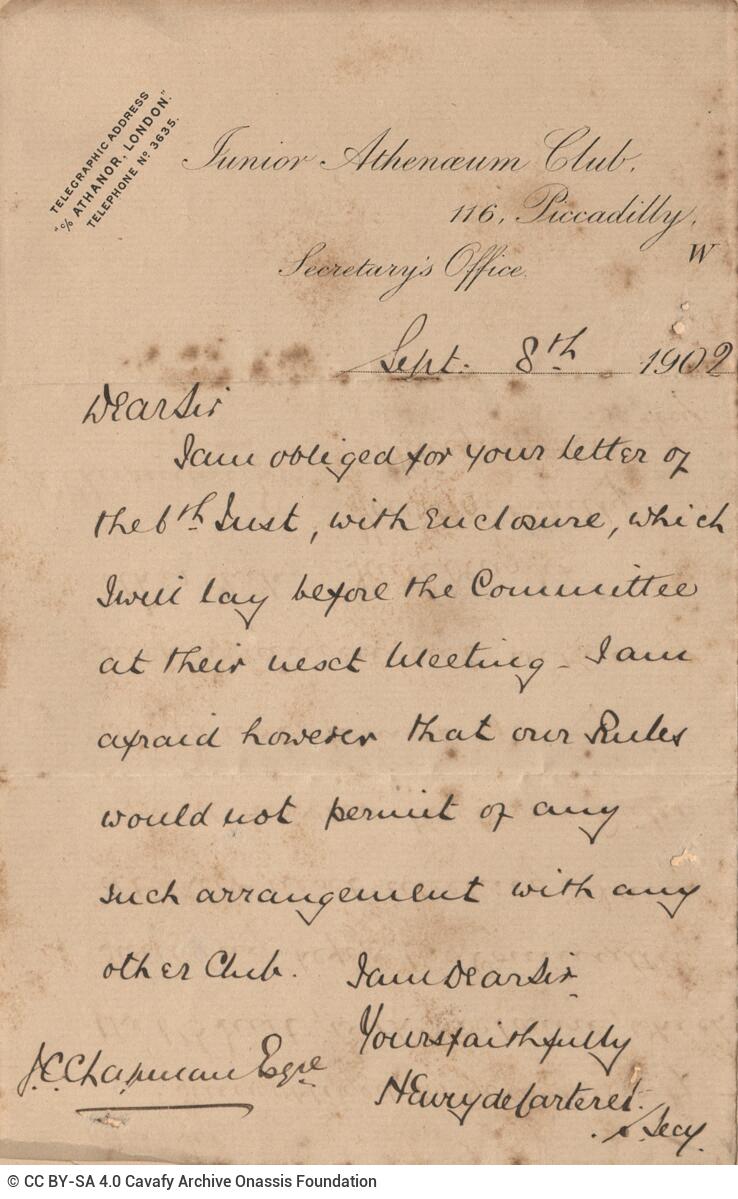 TELEGRAPHIC ADDRESS
"℅ ATHANOR, LONDON."
TELEPHONE Nº 3635.
Junior Athenæum Club,
116, Piccadilly,
W
Secretary's Office.
Sept. 8th 1902
Dear Sir
I am obliged for your letter of
the 6th Inst, with Enclosure, which
I will lay before the Committee
at their next Meeting - I am
afraid however that our Rules
would not permit of any
such arrangement with any
other Club. I am Dear Sir
Yours faithfully
Henry
Secy.
J.C. Chapman Esqre
© CC BY-SA 4.0 Cavafy Archive Onassis Foundation